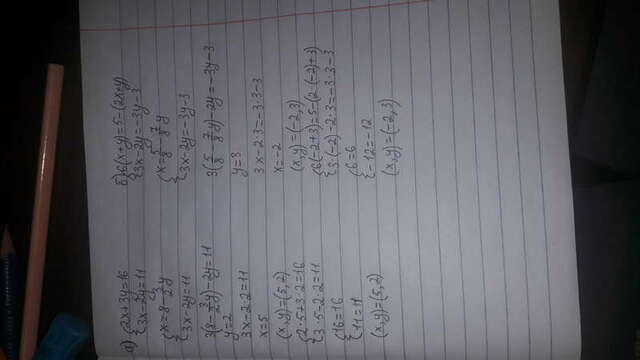 а) {2x+3y=16
{3x-2y=11
{x=8-3/2y
{3x-2y=11
3(8-3/2y)-2y=11
y=2
3x-2·2=11
x=5
(x,y)=(5,2)
{2·5+3·2=16
{3·5-2·2=11
{16=16
{11=11
(x,y)=(5,2)
б) {6(x+y)=5-(2x+y)
{3x-2y=-3y-3
{x=5/8-7/8y
{3x-2y=-3y-3
3(5/8-7/8y)-2y=-3y-3
y=3
3x-2·3=-3·3-3
x=-2
(x,y)=(-2,3)
{6(-2+3)=5-(2·(-2)+3)
{3·(-2)-2·3=-3·3-3
{6=6
{-12=-12
(x,y)=(-2,3)